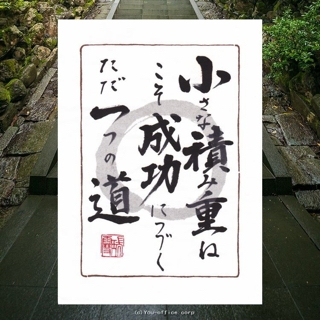 小さな積み重ね
こそ成功につづく
ただ一つの道
(c)You-office corp